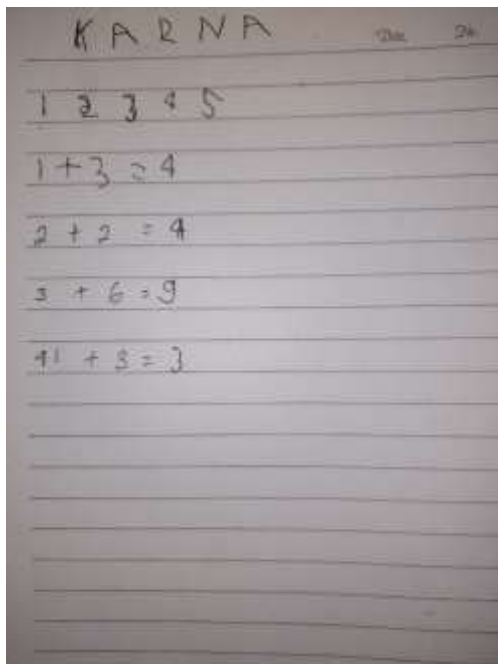 KARNA
1 2 3 4 5
1 + 3 = 4
2 + 2 = 4
3 + 6 = 9
41 + 3 = 3